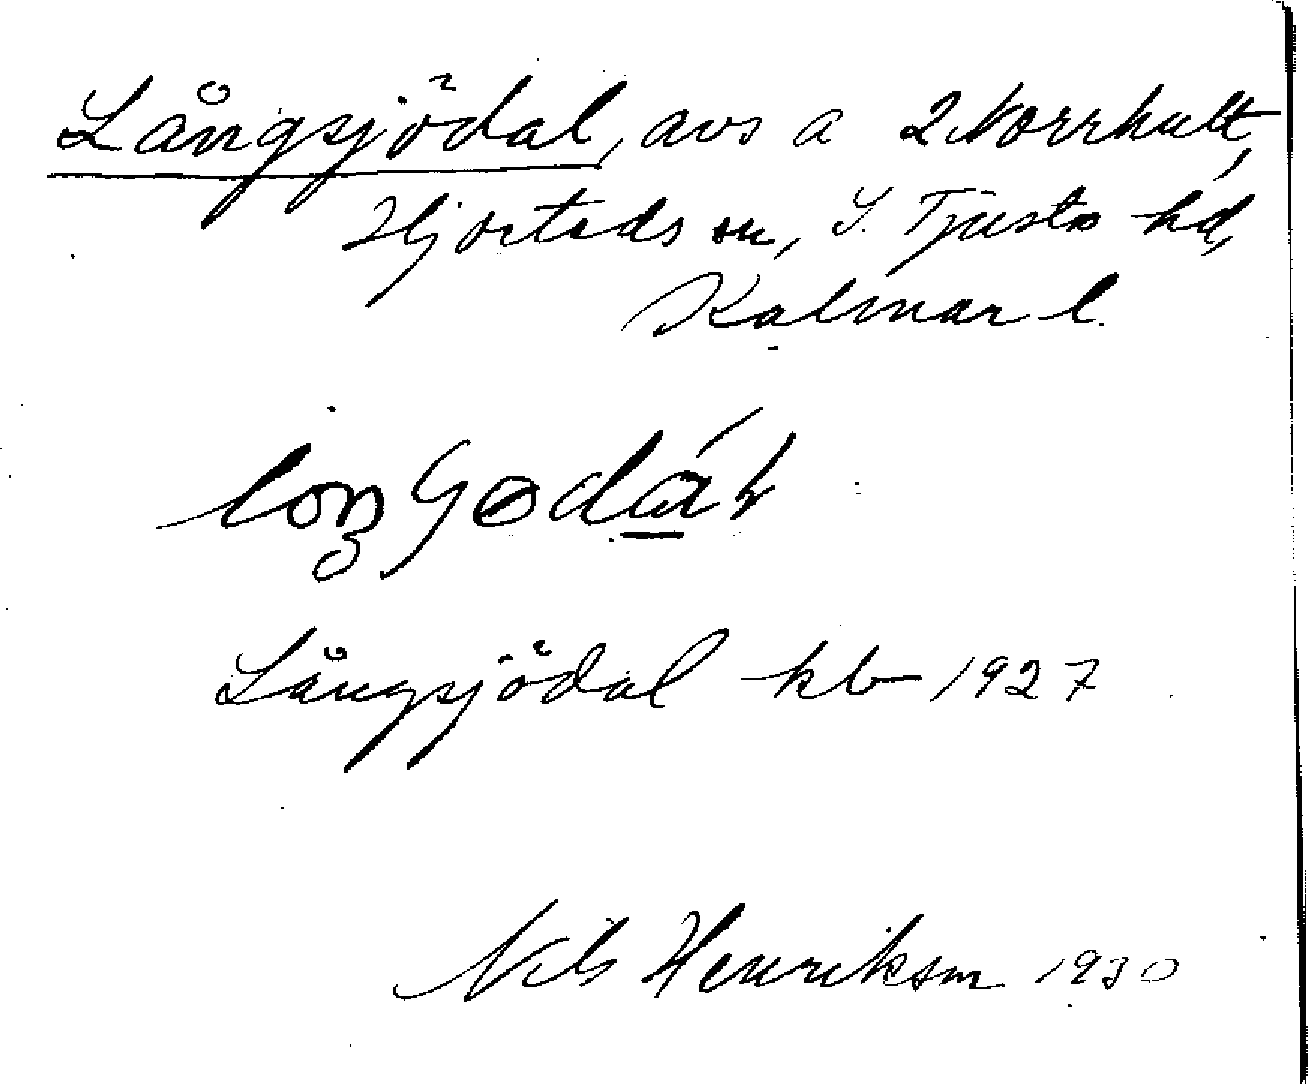 Långsjödal, avs a 2 Norrhult,
Hjorteds sn, S. Tjusts hd,
Kalmar l.
Långsjödal kb 1927
Nils Henriksson 1930